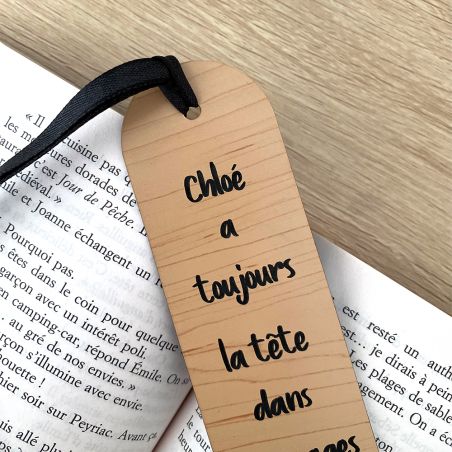 Chloé
a
toujours
la tête
dans
« Il
uisine pas
les me
ures dorades de
C'est Jour de Pêche. »
médiéval »
e et Joanne échangent un re
Pourquoi pas.
s êtes dans le coin pour quelque
garçon avec un intérêt poli.
n camping-car, répond Émile. On s
... au gré de nos envies.
arçon s'illumine avec envie.
houette !
hier soir sur Peyriac. Avant
uis allé plus
est resté un auth
... je dirais à pein
Les plages de sable
On a